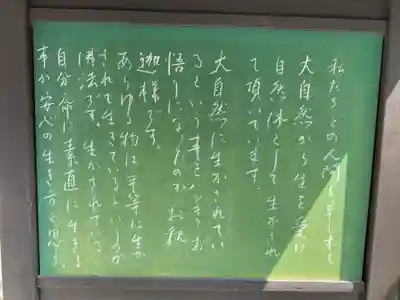 私たちぐの人間も草も木も
大自然から生を受け
自然体として生かされ
て頂いています。
大自然に生かされてい
るという事をハッキリお
悟りになったのがお釈
迦様です。
あらゆる物は平等に生か
されて生きているというのが
佛法です。生かされている
自分の命に素直に生きる
事が安心の生き方と思う。